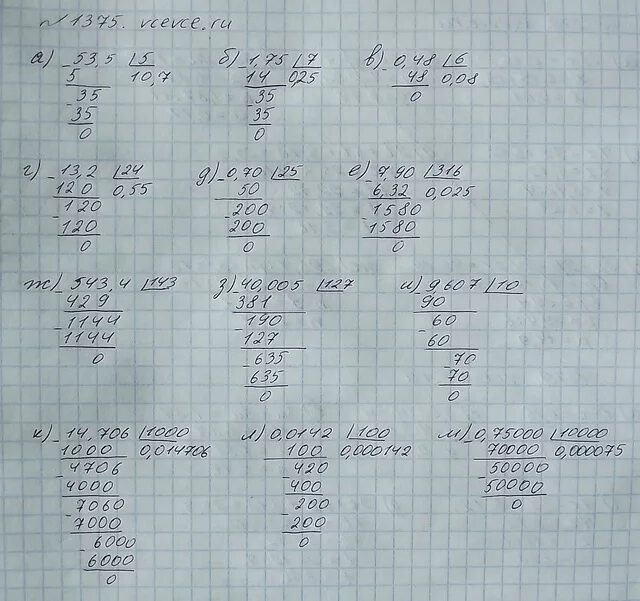 №1375. vcevce.ru
а) 53,5 |5 б) 1,75 |7 в) 0,48 |6
5 10,7 14 0,25 48 0,08
35 35 0
35 35
0 0
г) 13,2 |24 д) 0,70 |25 е) 7,90 |316
120 0,55 50 6,32 0,025
120 200 1580
120 200 1580
0 0 0
ж) 543,4 |143 з) 40,005 |127 и) 9607 |10
429 381 90
1144 190 60
1144 127 60
0 635 70
635 70
0 0
к) 14,706 |1000 л) 0,0142 |100 м) 0,75000 |10000
1000 0,014706 100 0,000142 70000 0,000075
4706 420 50000
4000 400 50000
7060 200 0
7000 200
6000 0
6000
0